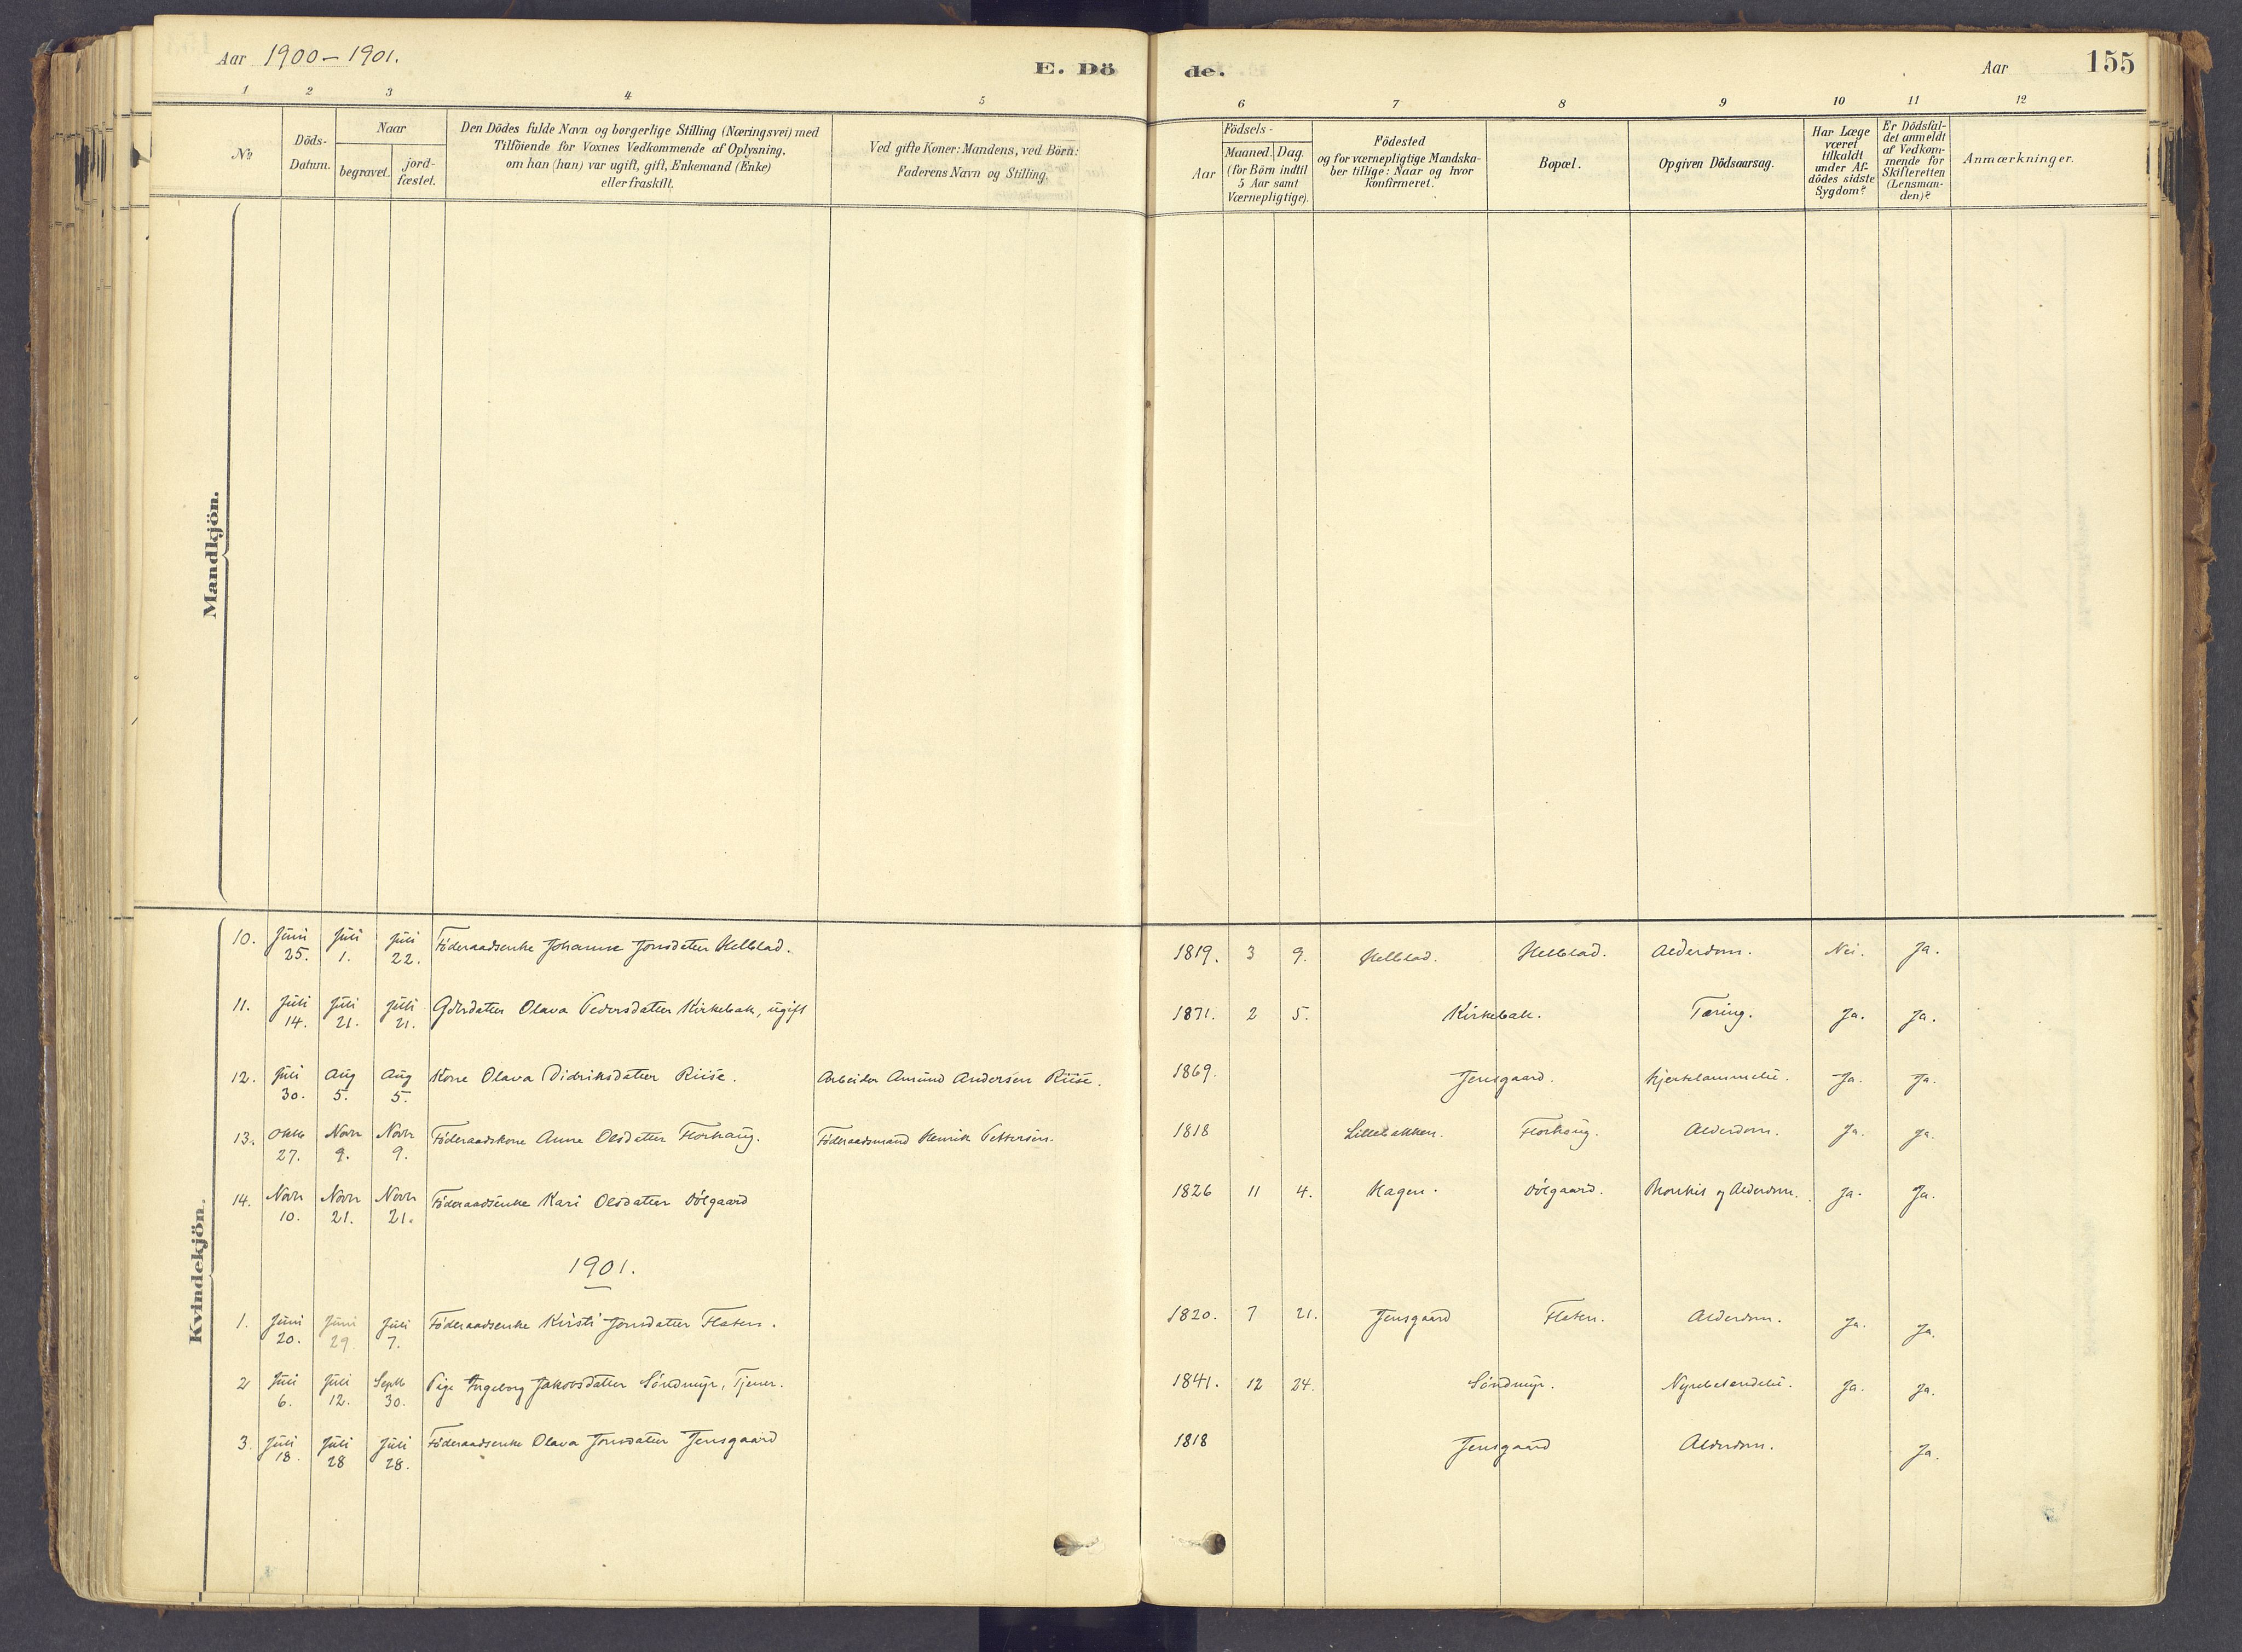 Aar 1900-1901.
E. Dö
de.
Aar
155
1 2 3 4 5
6 7 8 9 10 11 12
No
Döds-
Datum.
Naar
begravet.
jord-
fæstet.
Den Dödes fulde Navn og borgerlige Stilling (Næringsvei) med
Tilföiende for Voxnes Vedkommende af Oplysning,
om han (hun) var ugift, gift, Enkemand (Enke)
eller fraskilt.
Ved gifte Koner: Mandens, ved Börn:
Faderens Navn og Stilling.
Aar
Födsels-
Maaned. Dag.
(for Börn indtil
5 Aar samt
Værnepligtige).
Födested
og for værnepligtige Mandska-
ber tillige: Naar og hvor
konfirmeret.
Bopæl.
Opgiven Dödsaarsag.
Har Læge
været
tilkaldt
under Af-
dödes sidste
Sygdom?
Er Dödsfal-
det anmeldt
af Vedkom-
mende for
Skifteretten
(Lensman-
den)?
Anmærkninger.
Mandkjön.
Kvindekjön.
10. Juni 25. Juli 1. Juli 22. Föderaadsenke Johanne Jonsdatter Helblad. 1819. 3 9. Helblad. Helblad. Alderdom. Nei. Ja.
11. Juli 14. Juli 21. Juli 21. Gdrdatter Olava Pedersdatter Kirkebak, ugift 1871. 2 5. Kirkebak. Tæring. Ja. Ja.
12. Juli 30. Aug 5. Aug 5. Kone Olava Didriksdatter Riise. Arbeider Amund Andersen Riise. 1869. Jensgaard. Ja. Ja.
13. Oktb 27. Novbr 9. Novbr 9. Föderaadskone Anne Olsdatter Florhaug. Föderaadsmand Henrik Pettersen. 1818 Lillebakken. Florhoug. Alderdom. Ja. Ja.
14. Novbr 10. Novbr 21. Novbr 21. Föderaadsenke Kari Olsdatter Völgaard 1826 11 4. Hagen. Völgaard. Bronkit og Alderdom. Ja. Ja.
1901.
1. Juni 20. Juni 29 Juli 7. Föderaadsenke Kirsti Jonsdatter Flaten. 1820. 7 21. Jensgaard Flaten. Alderdom. Ja. Ja.
2 Juli 6. Juli 12. Septb 30. Pige Ingeborg Jakobsdatter Söndmyr, Tjener. 1841. 12 24. Söndmyr. Nyrebetændelse. Ja. Ja.
3. Juli 18. Juli 28 Juli 28. Föderaadsenke Olava Jonsdatter Jensgaard 1818 Jensgaard Alderdom. Ja.